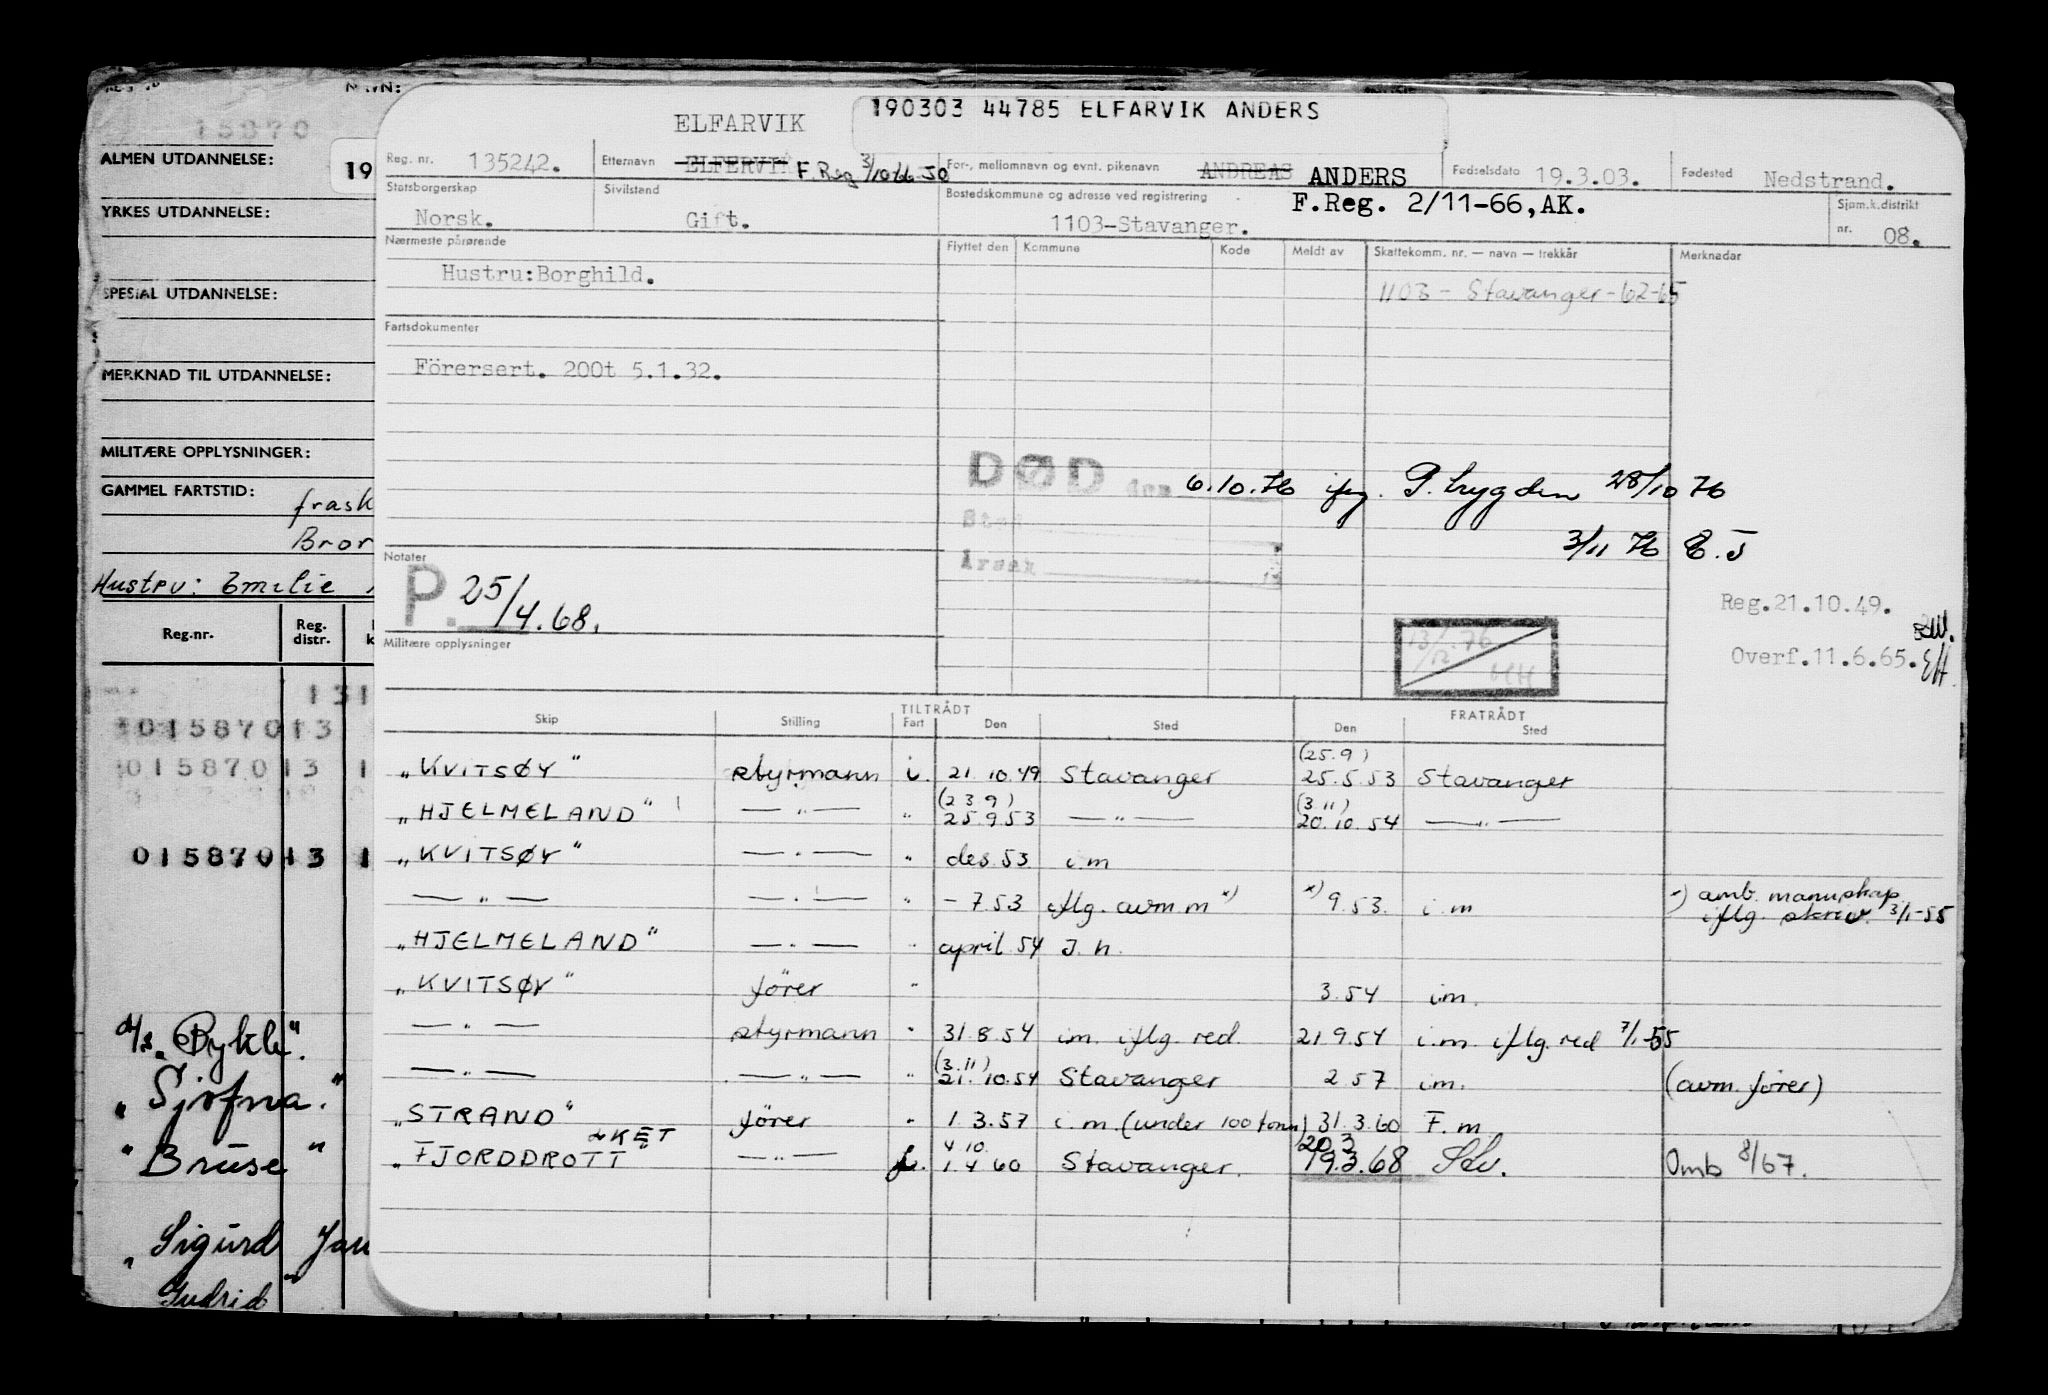 NAVN:
15870
ALMEN UTDANNELSE:
19
YRKES UTDANNELSE:
SPESIAL UTDANNELSE:
MERKNAD TIL UTDANNELSE:
MILITÆRE OPPLYSNINGER:
GAMMEL FARTSTID:
frask
Bror
Hustru: Emilie
Reg.nr. Reg. distr. k
131
0158701 3
0158701 3 1
0158701 3 1
d/s "Bykle".
" Sjofna."
" Bruse "
" Sigurd Jan
Gudrid "
190303 44785 ELFARVIK ANDERS
ELFARVIK
Reg. nr. 135242. Etternavn ELFERVIK F. Reg 3/10-66 JO For-, mellomnavn og evnt. pikenavn ANDREAS ANDERS Fødselsdato 19.3.03. Fødested Nedstrand.
Statsborgerskap Norsk. Sivilstand Gift. Bostedskommune og adresse ved registrering 1103-Stavanger. F.Reg. 2/11-66, AK. Sjøm.k.distrikt nr. 08.
Nærmeste pårørende Flyttet den Kommune Kode Meldt av Skattekomm. nr. — navn — trekkår Merknader
Hustru:Borghild.
1103 - Stavanger - 62-65
Fartsdokumenter
Förersert. 200t 5.1.32.
DØD den 6.10.76 iflg. P. trygden 28/10 76
Sted
3/11 76 E.J
Årsak
Notater
P. 25/4.68.
Reg.21.10.49.
Overf.11.6.65. EH.
13/12.76 HH
Militære opplysninger
TILTRÅDT FRATRÅDT
Skip Stilling Fart Den Sted Den Sted
(25.9)
"KVITSØY" styrmann i. 21.10.49 Stavanger 25.5.53 Stavanger
(23 9) (3.11)
"HJELMELAND" — " — " 25.9.53 — " — 20.10.54 — " —
"KVITSØY" — " — " des. 53 i.m
— " — — " — " - 7.53 iflg. avm.m x) x) 9.53. i.m x) amb. mannskap iflg. skriv. 3/1-55
"HJELMELAND" — " — " april 54 J.h.
"KVITSØY" förer " 3.54 i.m.
— " — styrmann " 31.8.54 i.m. iflg. red. 21.9.54 i.m. iflg. red 7/1-55
(3.11)
— " — — " — " 21.10.54 Stavanger 2.57 i.m. (avm. förer)
"STRAND" förer " 1.3.57 i.m. (under 100 tonn) 31.3.60 F.m.
LKET 4 10. 20.3
"FJORDDROTT" — " — f. 1.4 60 Stavanger. 19.3.68 Sdv. Omb 8/67.